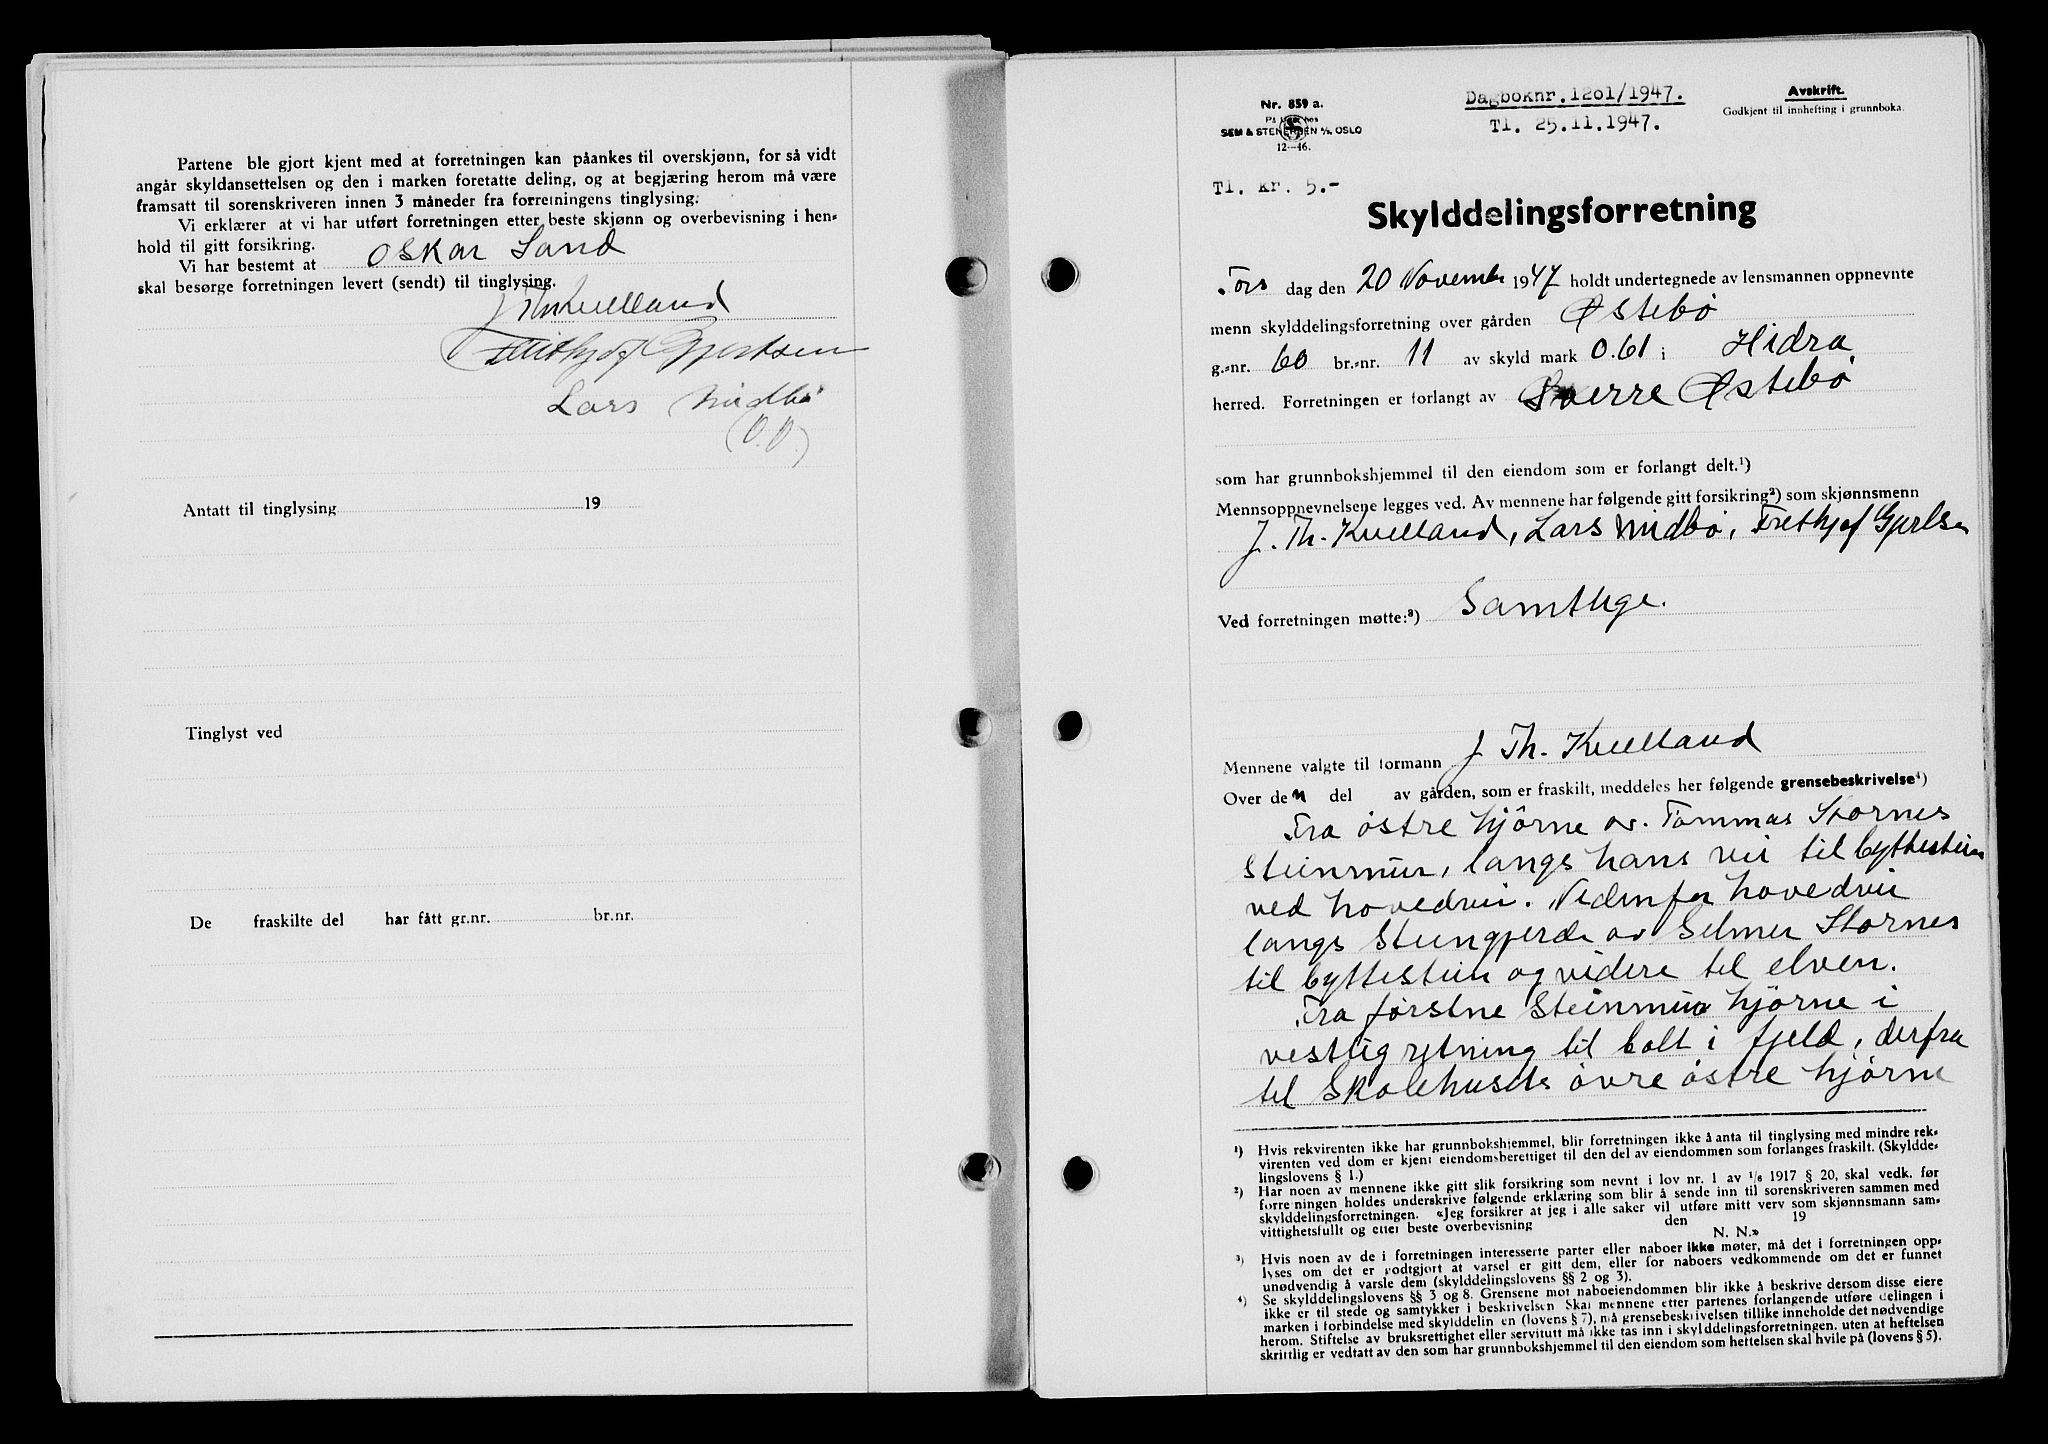 Partene ble gjort kjent med at forretningen kan påankes til overskjønn, for så vidt
angår skyldansettelsen og den i marken foretatte deling, og at begjæring herom må være
framsatt til sorenskriveren innen 3 måneder fra forretningens tinglysing.
Vi erklærer at vi har utført forretningen etter beste skjønn og overbevisning i hen-
hold til gitt forsikring.
Vi har bestemt at Oskar Sand
skal besørge forretningen levert (sendt) til tinglysing.
J Th Kvelland
Frithjof Gjertsen
Lars Midbø
Antatt til tinglysing 19
Tinglyst ved
De fraskilte del har fått gr.nr. br.nr.
Nr. 859 a.
På lager hos
SEM & STENERSEN A/S, OSLO
12-46.
Dagboknr. 1261/1947.
Tl. 25.11.1947.
Avskrift.
Godkjent til innhefting i grunnboka.
Tl. kr. 5.-
Skylddelingsforretning
Tors dag den 20 November 1947 holdt undertegnede av lensmannen oppnevnte
menn skylddelingsforretning over gården Østebö
g.-nr. 60 br.-nr. 11 av skyld mark 0.61 i Hidra
herred. Forretningen er forlangt av Sverre Østebö
som har grunnbokshjemmel til den eiendom som er forlangt delt.¹)
Mennsoppnevnelsene legges ved. Av mennene har følgende gitt forsikring²) som skjønnsmenn
J. Th. Kvelland, Lars Midbö, Frethjof Gjertsen
Ved forretningen møtte:³) Samtlige.
Mennene valgte til formann J Th. Kvelland
Over den del av gården, som er fraskilt, meddeles her følgende grensebeskrivelse⁴)
Fra östre hjörne av Tommas Stornes
Steinmur, langs hans vei til byttestein
ved hovedvei. Nedenfor hovedvei
langs Steingjerde av Selmer Stornes
til byttestein og videre til elven.
Fra förstne Steinmur hjörne i
vestlig retning til bolt i fjeld, derfra
til Skolehusets övre östre hjörne
¹) Hvis rekvirenten ikke har grunnbokshjemmel, blir forretningen ikke å anta til tinglysing med mindre rek-
virenten ved dom er kjent eiendomsberettiget til den del av eiendommen som forlanges fraskilt. (Skyldde-
lingslovens § 1.)
²) Har noen av mennene ikke gitt slik forsikring som nevnt i lov nr. 1 av 1/6 1917 § 20, skal vedk. før
forretningen holdes underskrive følgende erklæring som blir å sende inn til sorenskriveren sammen med
skylddelingsforretningen. «Jeg forsikrer at jeg i alle saker vil utføre mitt verv som skjønnsmann sam-
vittighetsfullt og etter beste overbevisning den 19
N. N.»
³) Hvis noen av de i forretningen interesserte parter eller naboer ikke møter, må det i forretningen opp-
lyses om det er godtgjort at varsel er gitt dem, eller for naboers vedkommende om det er funnet
unødvendig å varsle dem (skylddelingslovens §§ 2 og 3).
⁴) Se skylddelingslovens §§ 3 og 8. Grensene mot naboeiendommen blir ikke å beskrive dersom disse eiere
ikke er til stede og samtykker i beskrivelsen Skal mennene etter partenes forlangende utføre delingen i
marken i forbindelse med skylddelingen (lovens § 7), må grensebeskrivelsen tillike inneholde det nødvendige
herom. Stiftelse av bruksrettighet eller servitutt må ikke tas inn i skylddelingsforretningen, uten at heftelsen
skriftlig er vedtatt av den som har grunnbokshjemmel til den eiendom som heftelsen skal hvile på (lovens § 5).